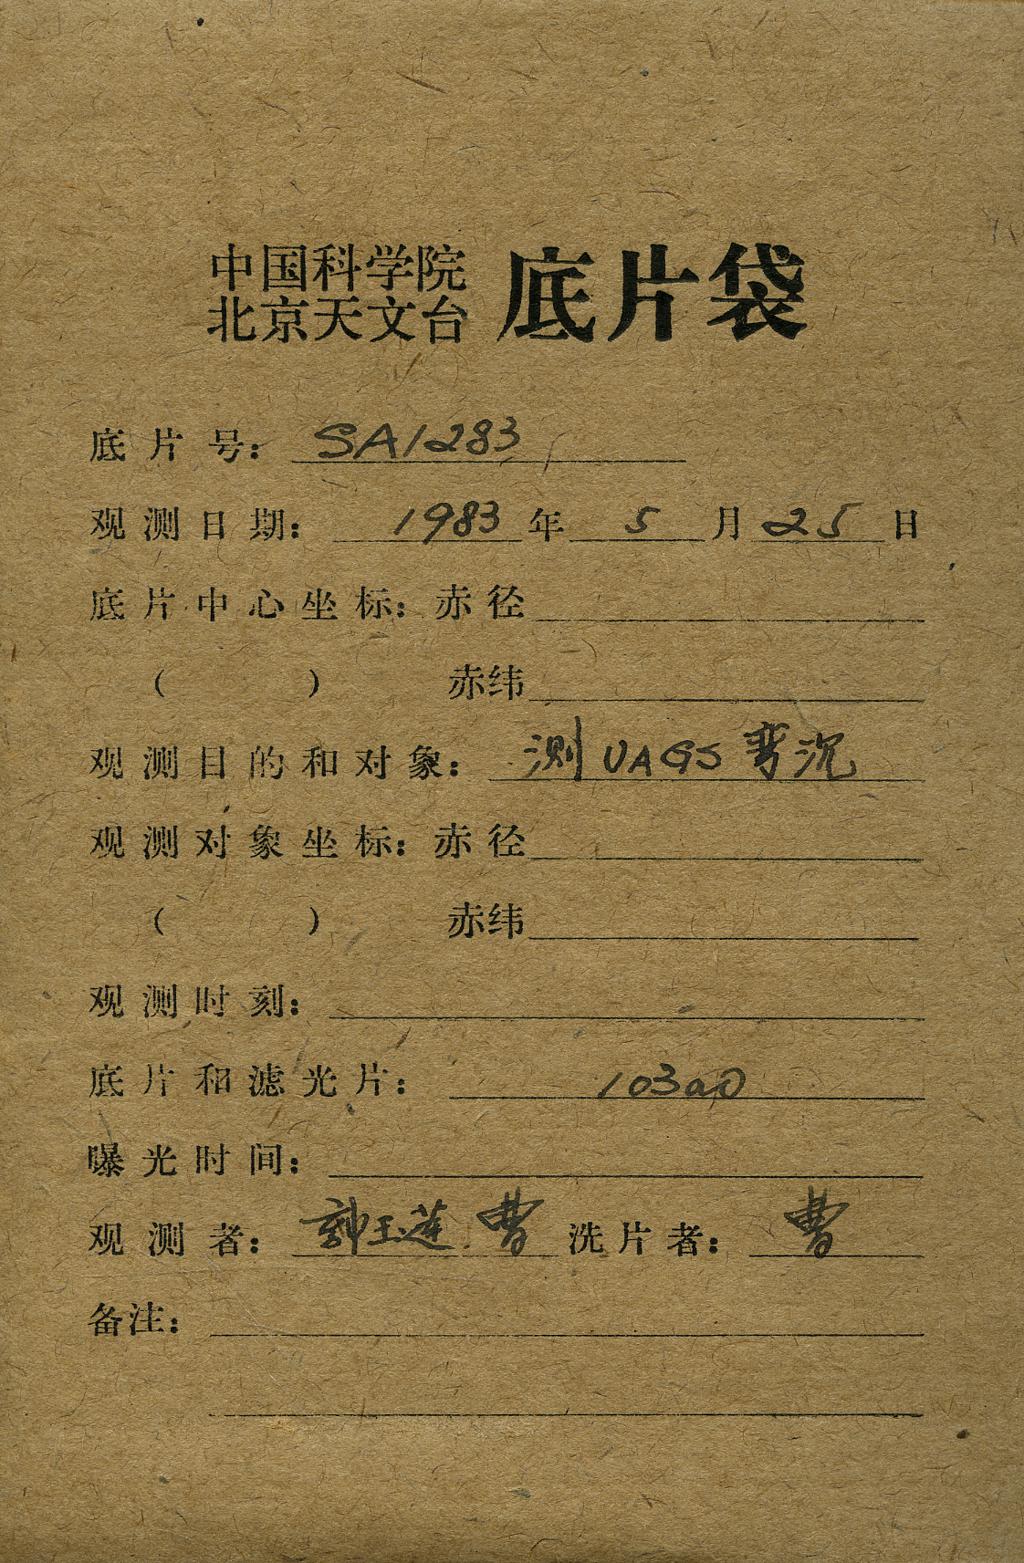 中国科学院
北京天文台 底片袋
底片号: SA1283
观测日期: 1983年 5月25日
底片中心坐标: 赤径
( ) 赤纬
观测目的和对象: 测UAGS弯沉
观测对象坐标: 赤径
( ) 赤纬
观测时刻:
底片和滤光片: 103aO
曝光时间:
观测者: 郭玉莲 曹 洗片者: 曹
备注: